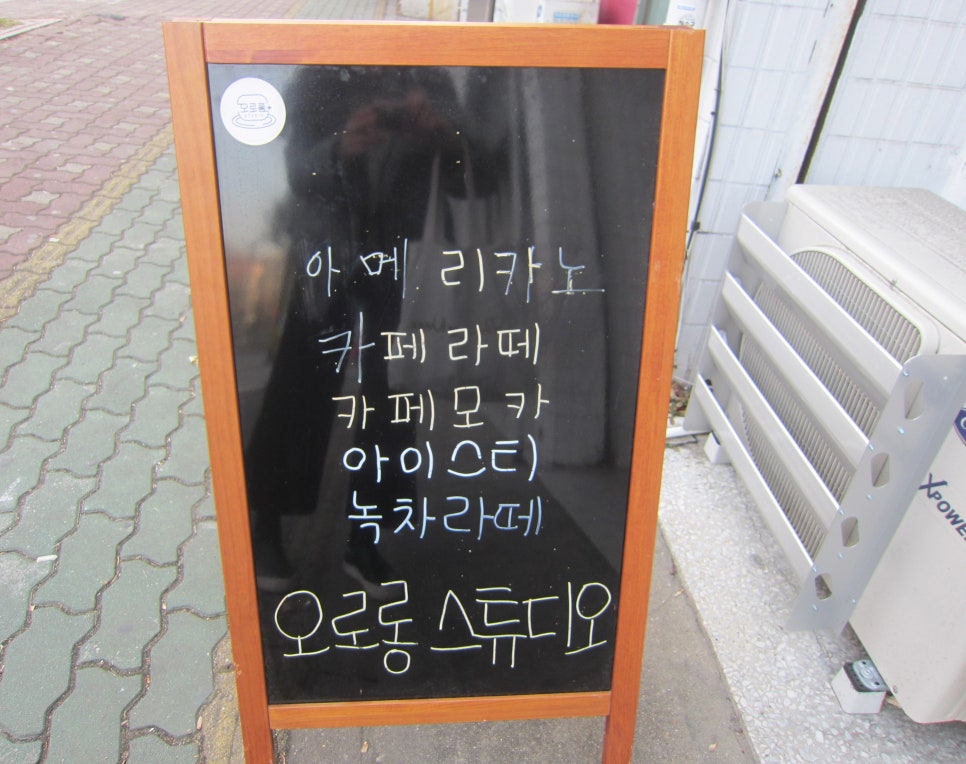 오로롱
아메리카노
카페라떼
카페모카
아이스티
녹차라떼
오로롱 스튜디오
XPOWER